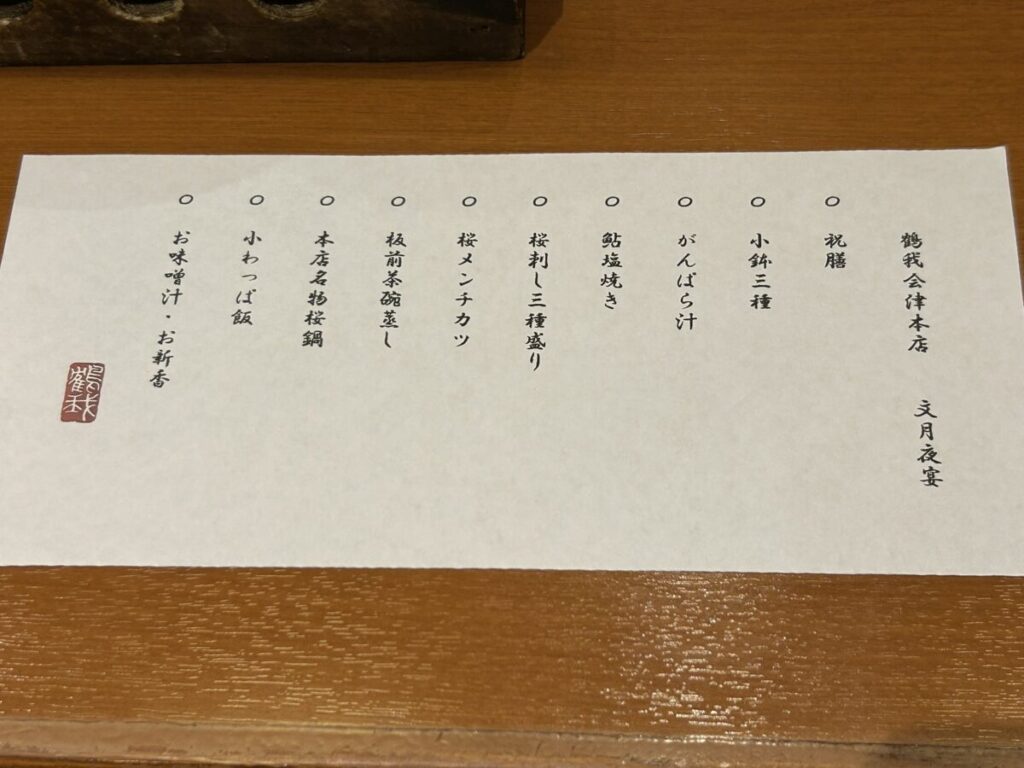 鶴我会津本店　文月夜宴
○ 祝膳
○ 小鉢三種
○ がんばら汁
○ 鮎塩焼き
○ 桜刺し三種盛り
○ 桜メンチカツ
○ 板前茶碗蒸し
○ 本店名物桜鍋
○ 小わっぱ飯
○ お味噌汁・お新香
鶴我